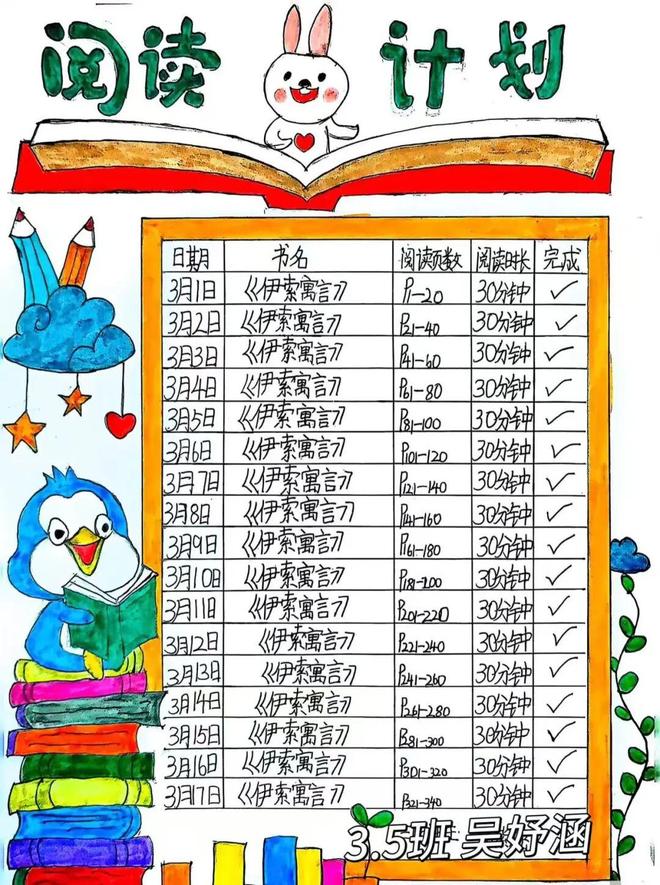 阅读计划
日期 书名 阅读页数 阅读时长 完成
3月1日 《伊索寓言》 P1-20 30分钟 ✓
3月2日 《伊索寓言》 P21-40 30分钟 ✓
3月3日 《伊索寓言》 P41-60 30分钟 ✓
3月4日 《伊索寓言》 P61-80 30分钟 ✓
3月5日 《伊索寓言》 P81-100 30分钟 ✓
3月6日 《伊索寓言》 P101-120 30分钟 ✓
3月7日 《伊索寓言》 P121-140 30分钟 ✓
3月8日 《伊索寓言》 P141-160 30分钟 ✓
3月9日 《伊索寓言》 P161-180 30分钟 ✓
3月10日 《伊索寓言》 P181-200 30分钟 ✓
3月11日 《伊索寓言》 P201-220 30分钟 ✓
3月12日 《伊索寓言》 P221-240 30分钟 ✓
3月13日 《伊索寓言》 P241-260 30分钟 ✓
3月14日 《伊索寓言》 P261-280 30分钟 ✓
3月15日 《伊索寓言》 P281-300 30分钟 ✓
3月16日 《伊索寓言》 P301-320 30分钟 ✓
3月17日 《伊索寓言》 P321-340 30分钟 ✓
3.5班 吴妤涵